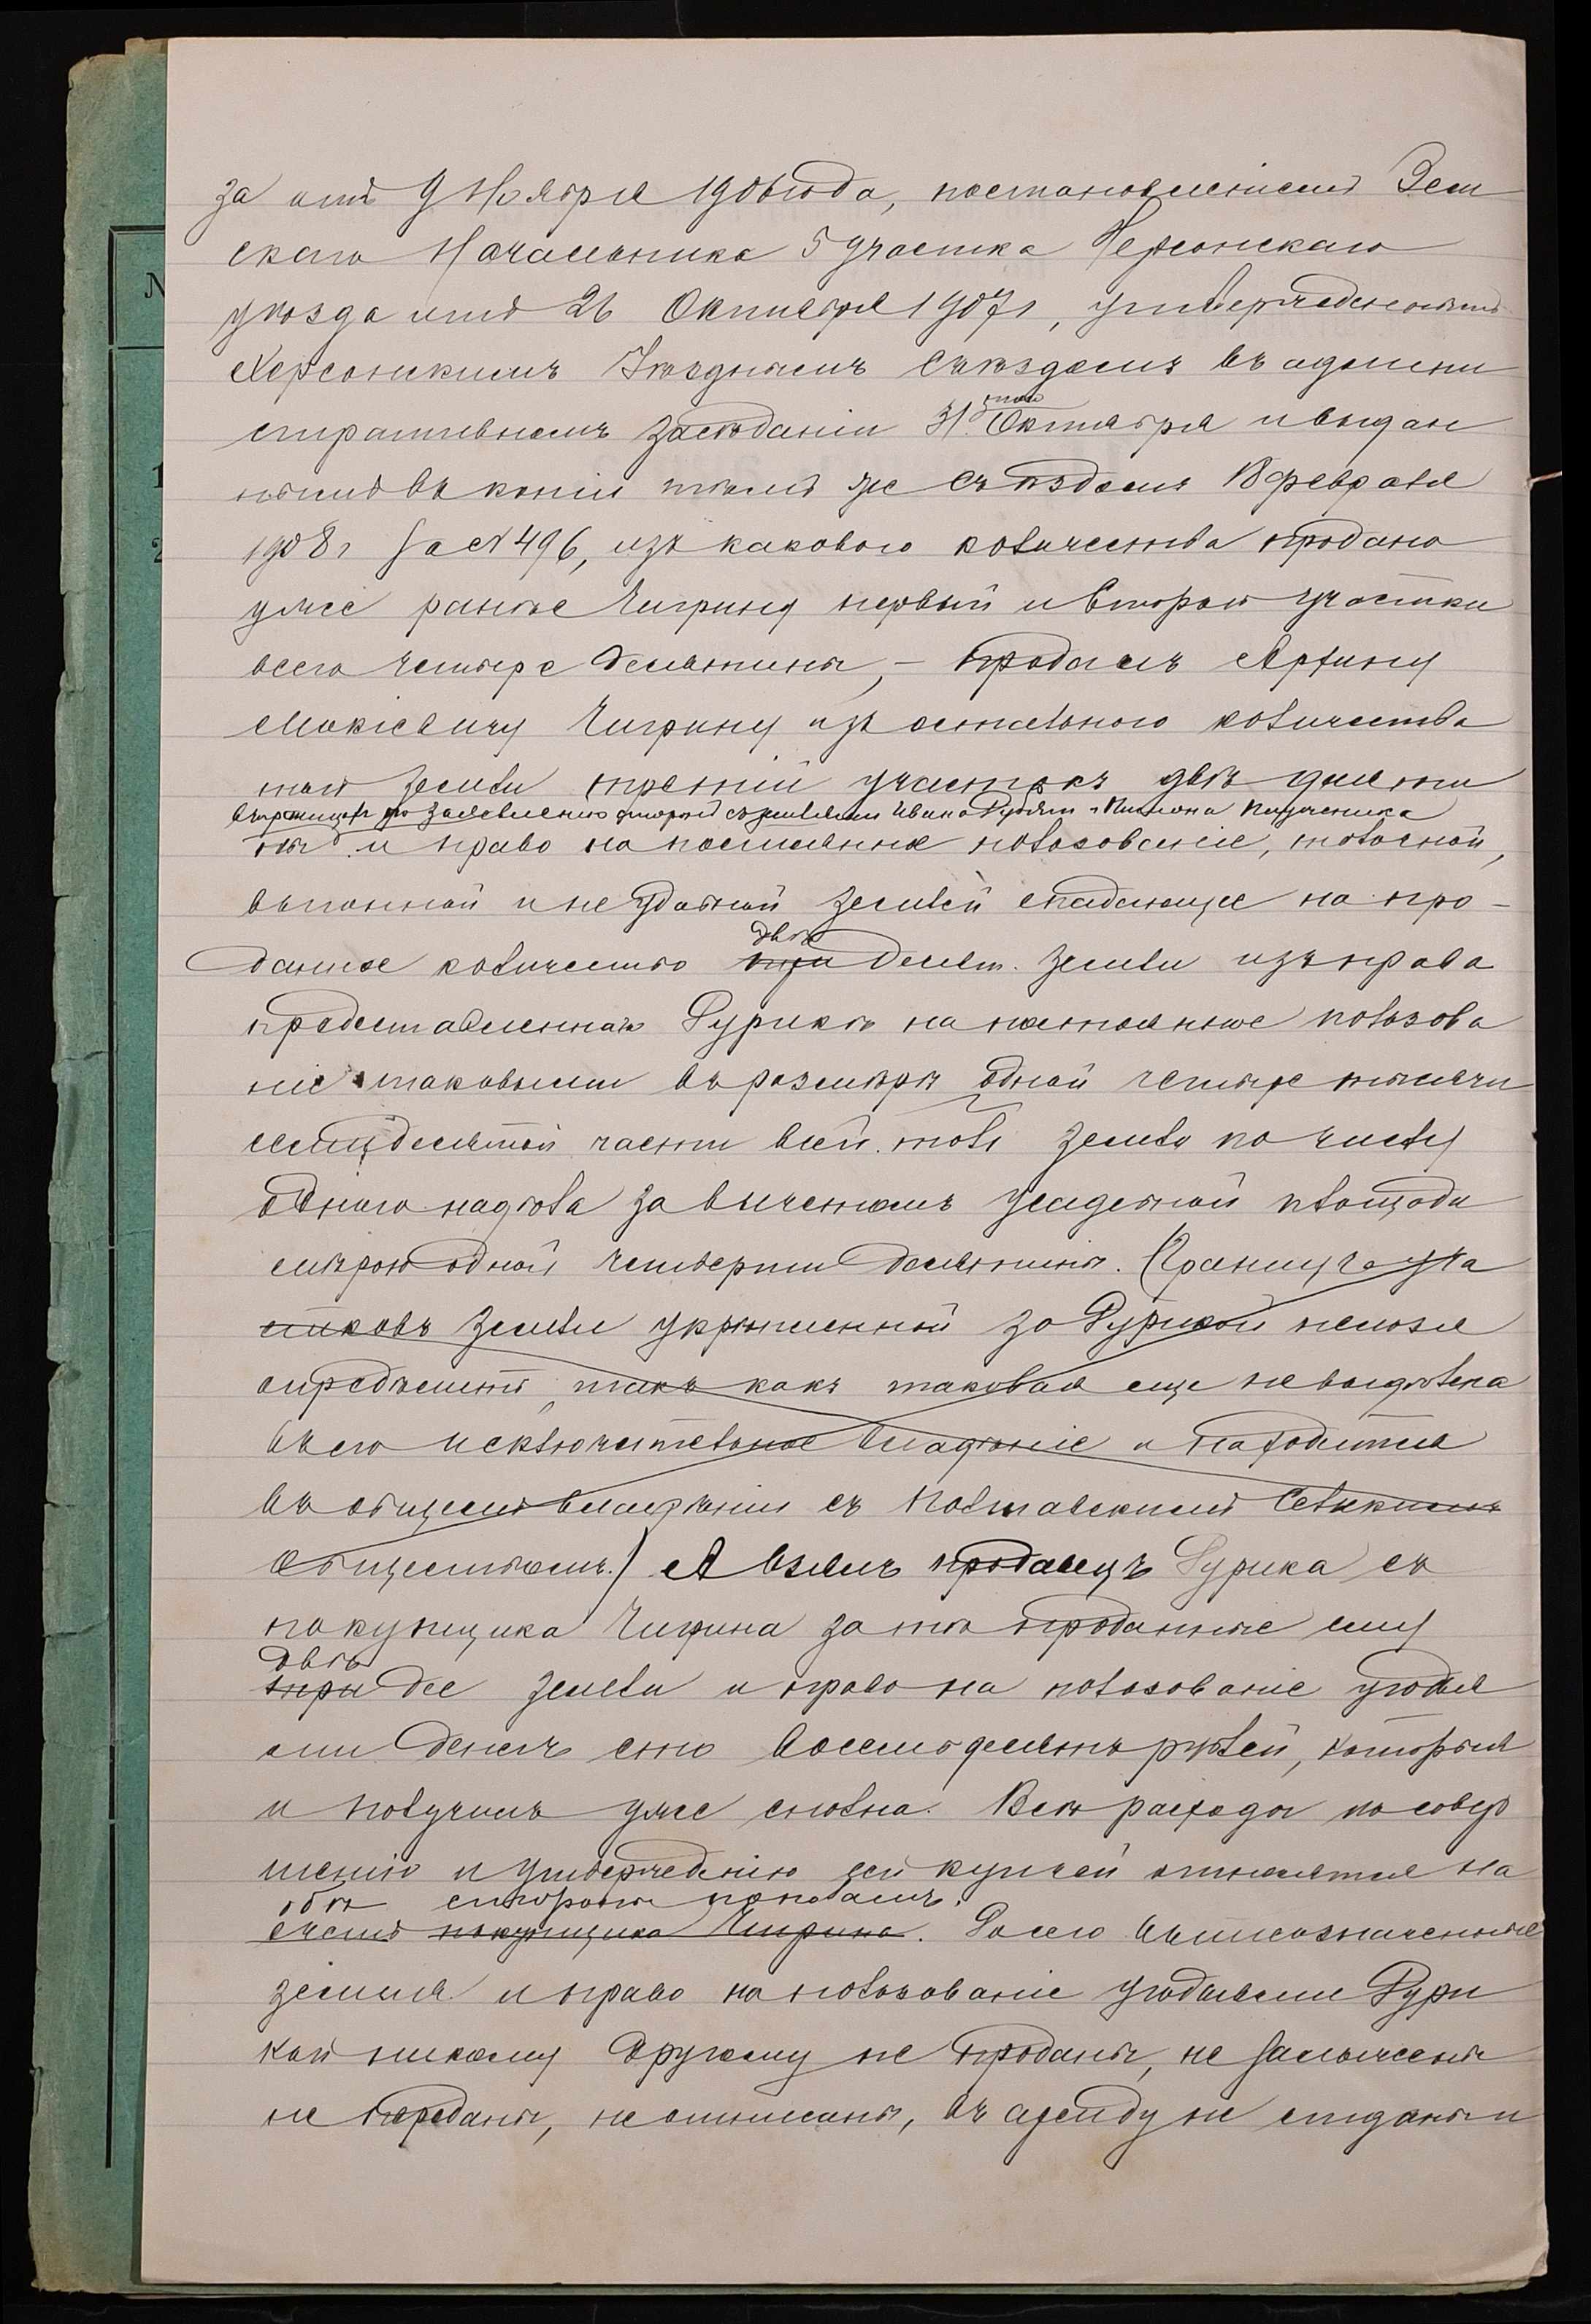 за отъ 9 Ноября 1906 года, постановленіемъ Зем
скаго Начальника 5 участка Херсонскаго
уѣзда отъ 26 Октября 1907 г, утвержденнымъ
Херсонскимъ Уѣзднымъ Съѣздомъ въ админи
стративномъ засѣданіи 31 того Октября и выдан
нымъ въ копіи тѣмъ же Съѣздомъ 18 февраля
1908 г за № 496, изъ какового количества продано
уже ранѣе Чигрину первый и второй участки
всего четыре десятины, – продалъ
Мокіевичу Чигрину изъ остального количества
той земли третій участокъ двѣ десяти
въ границахъ по заявленію сторонъ съ землями Ивана и
ны и право на постоянное пользованіе, толочной,
выгонной и неудобной землей спадающее на про-
данное количество три двѣ десят. земли изъ права
предоставленнаго Рурикѣ на постоянное пользова
ніе таковыми въ размѣрѣ одной четыре тысячи
семидесятой части всей толч земли по числу
одного надѣла за вычетомъ усадебной площади
мѣрою одной четверти десятины. (Границъ уча
стковъ земли укрѣпленной за Рурикой нельзя
опредѣлить, такъ какъ таковая еще не выдѣлена
въ его исключительное владѣніе и находится
въ общемъ владѣніи съ Полтавскимъ Сельскимъ
Обществомъ.) А взялъ продавецъ Рурика съ
покупщика Чигрина за тѣ проданные ему
двѣ
три дес земли и право на пользованіе угодья
ми денегъ сто восемьдесятъ рублей, которыя
и получилъ уже сполна. Всѣ расходы по совер
шенію и утвержденію сей купчей относятся на
обѣ стороны пополамъ.
счетъ покупщика Чигрина. До сего вышеозначенные
земля и право на пользованіе угодьями Рури
кой никому другому не проданы, не заложены
не переданы, не отписаны, въ аренду не отданы и